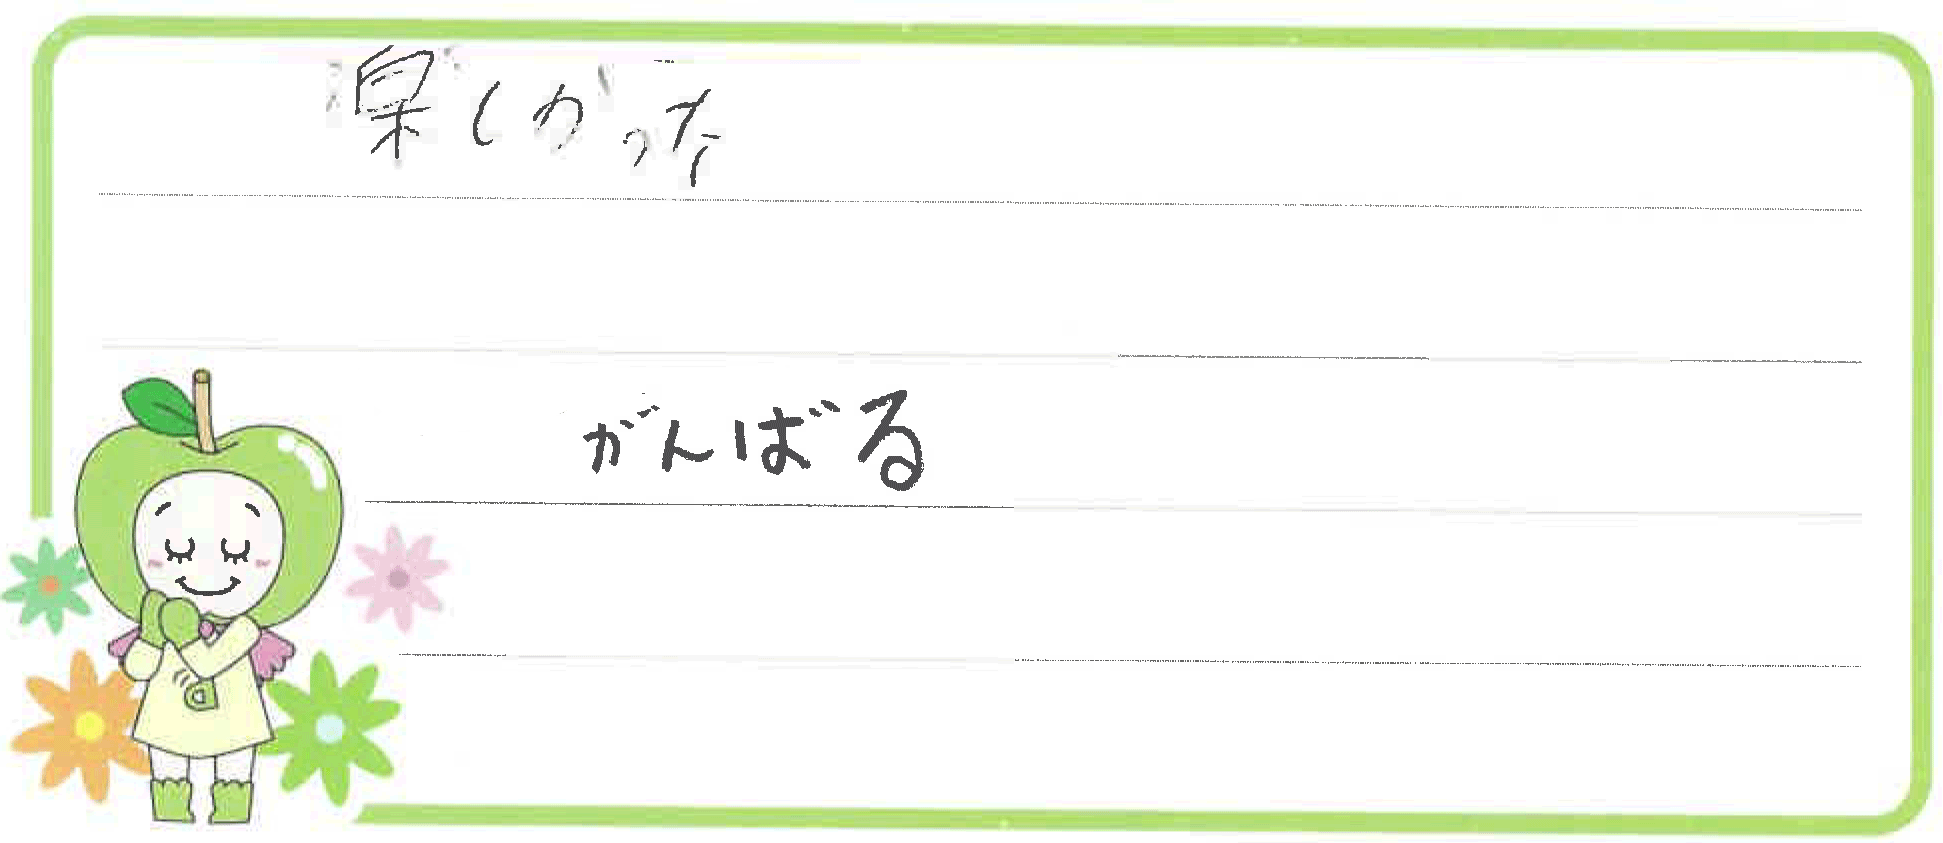 楽しかった
がんばる